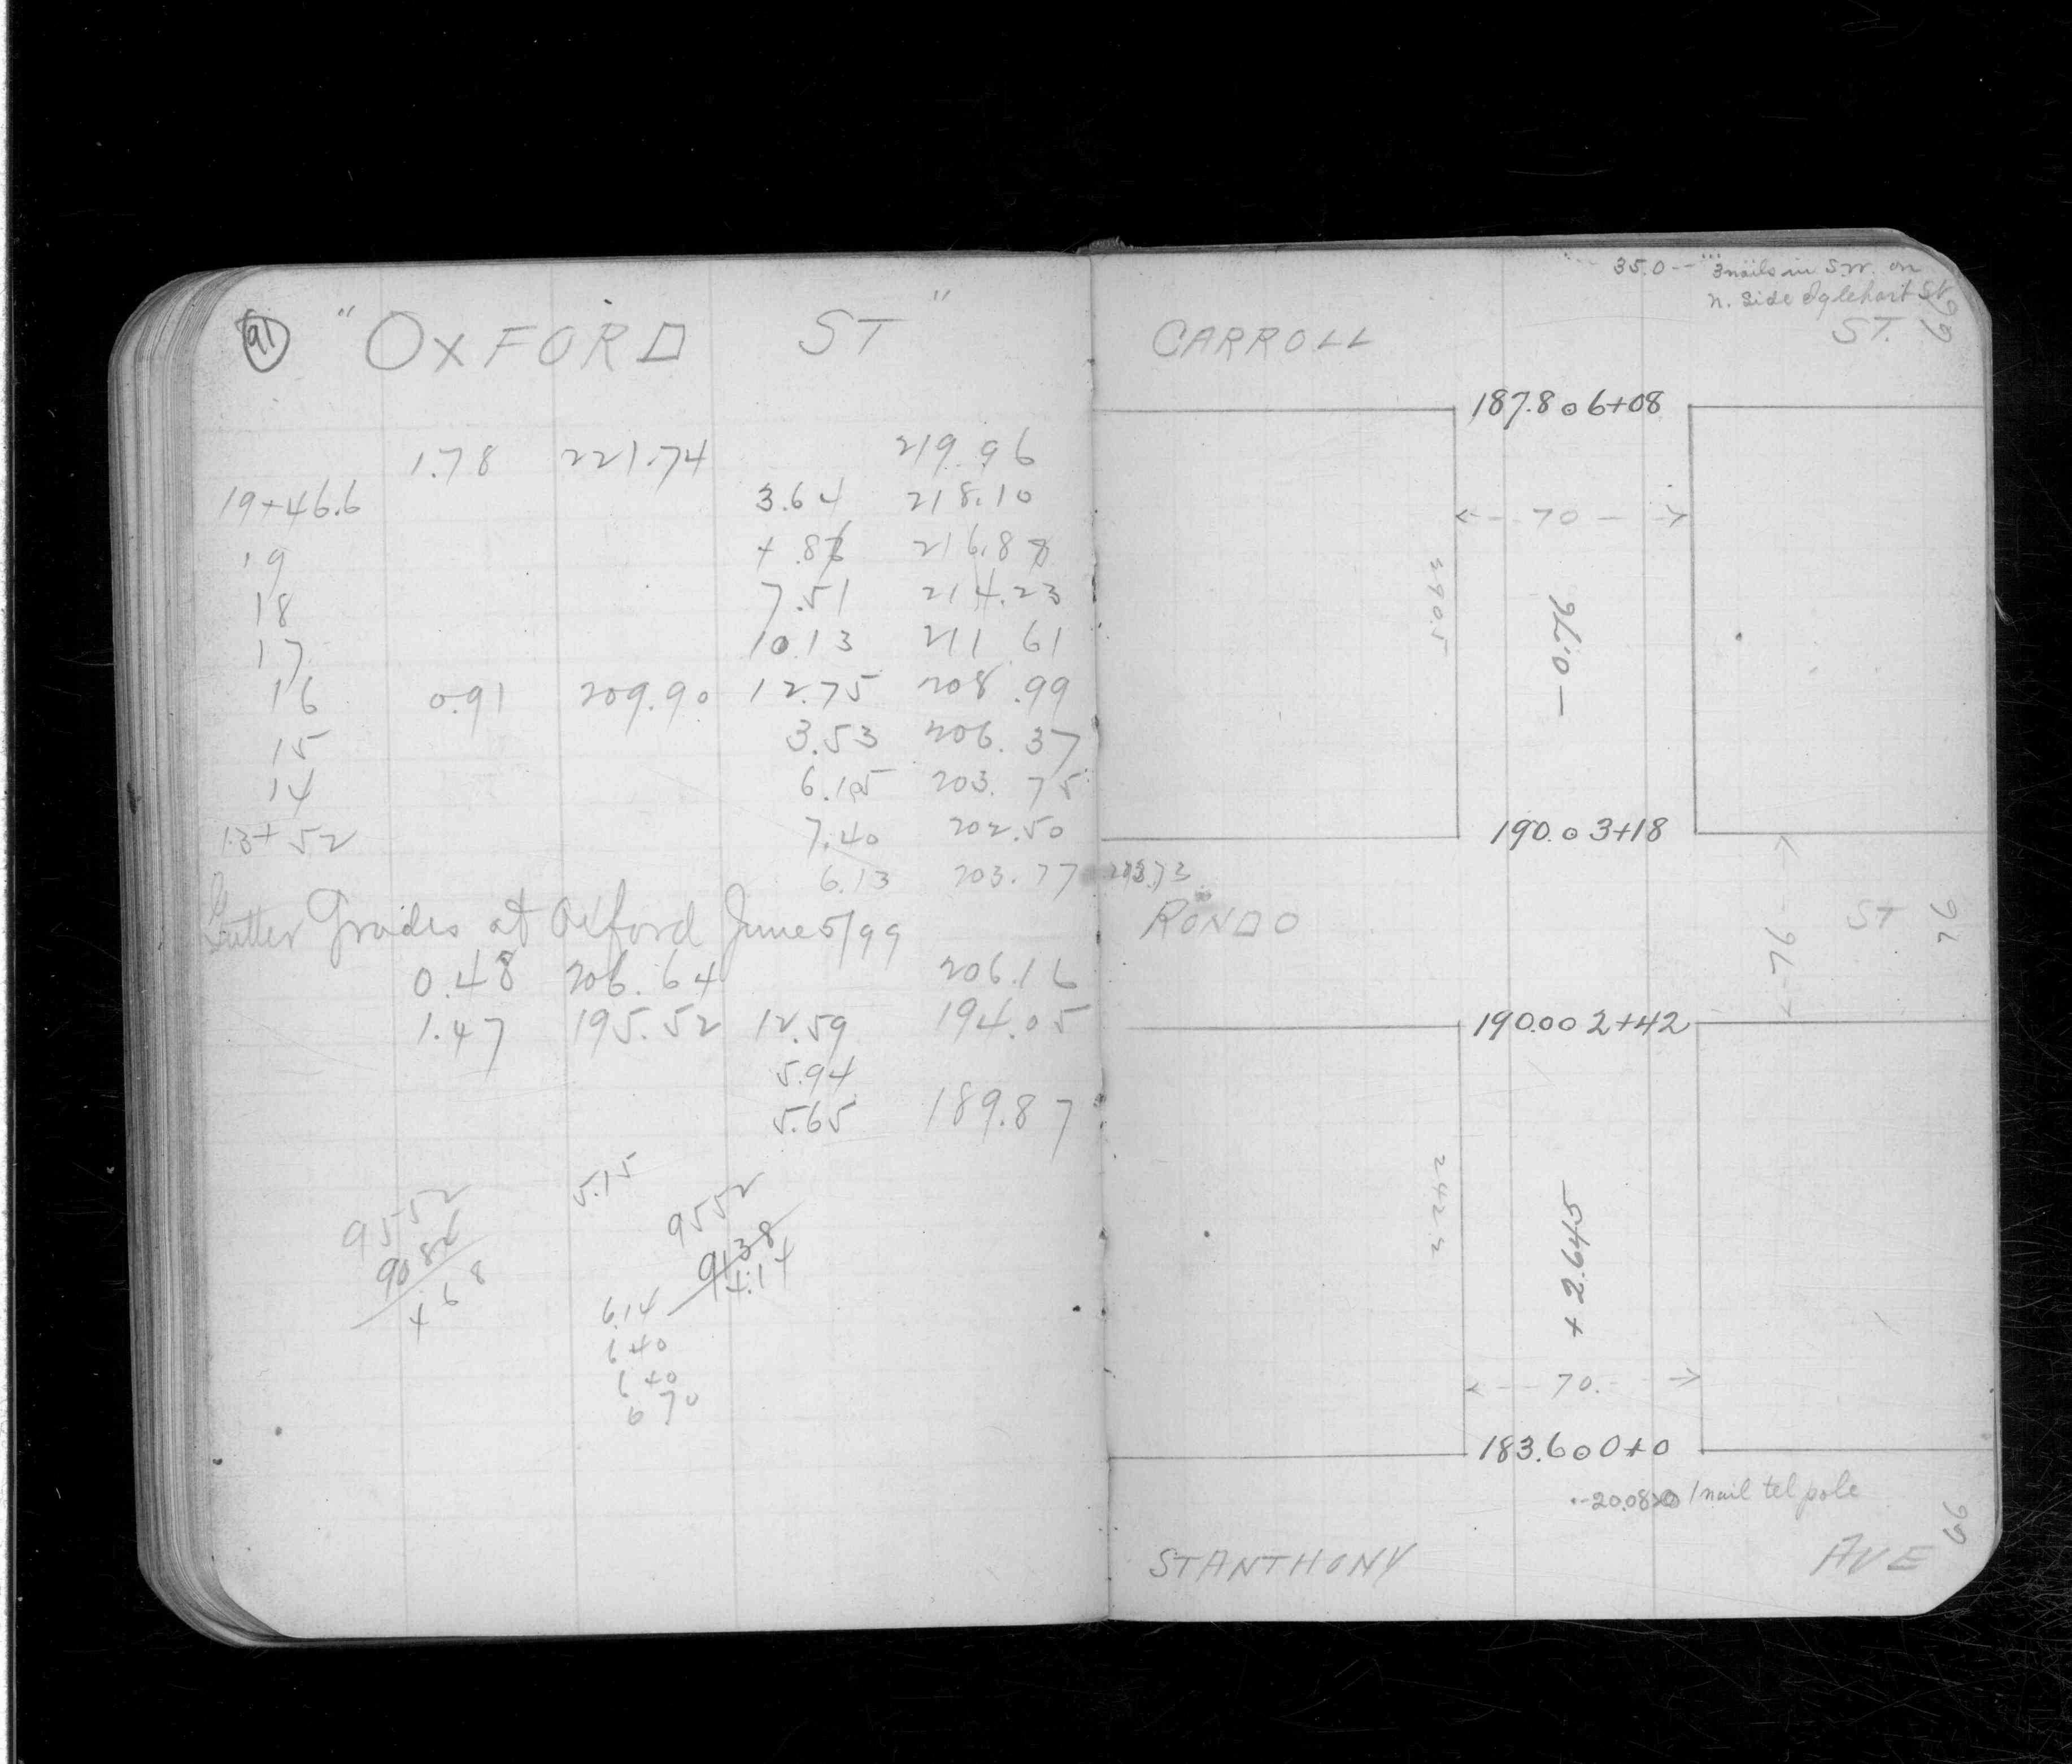 91 "OXFORD ST"
1.78 221.74 219.96
19+46.6 3.64 218.10
19 216.88
18 7.51 214.23
17 10.13 211 61
16 0.91 209.90 12.75 208.99
15 3.53 206.37
14 6.15 203.75
13+52 7.40 202.50
6.13 203.77
Gutter Grades at Oxford June 5/99
0.48 206.64 206.16
1.47 195.52 12.59 194.05
5.94
5.65 189.87
5.15
9552
9084
4 68
9552
9138
4.14
6.14
6 40
6 40
6 70
35.0 -- 3 nails in S.W. on
n. side Iglehart St
CARROLL ST. 66
187.8 o 6+08
<- - 70 - ->
290.5
- 0.76
190. o 3+18
RONDO ST 76
<- 76 ->
190.0 o 2+42
242.2
+ 2.645
<- - 70. - ->
183.6 o 0+0
20.08 1 nail tel pole
ST ANTHONY AVE 66